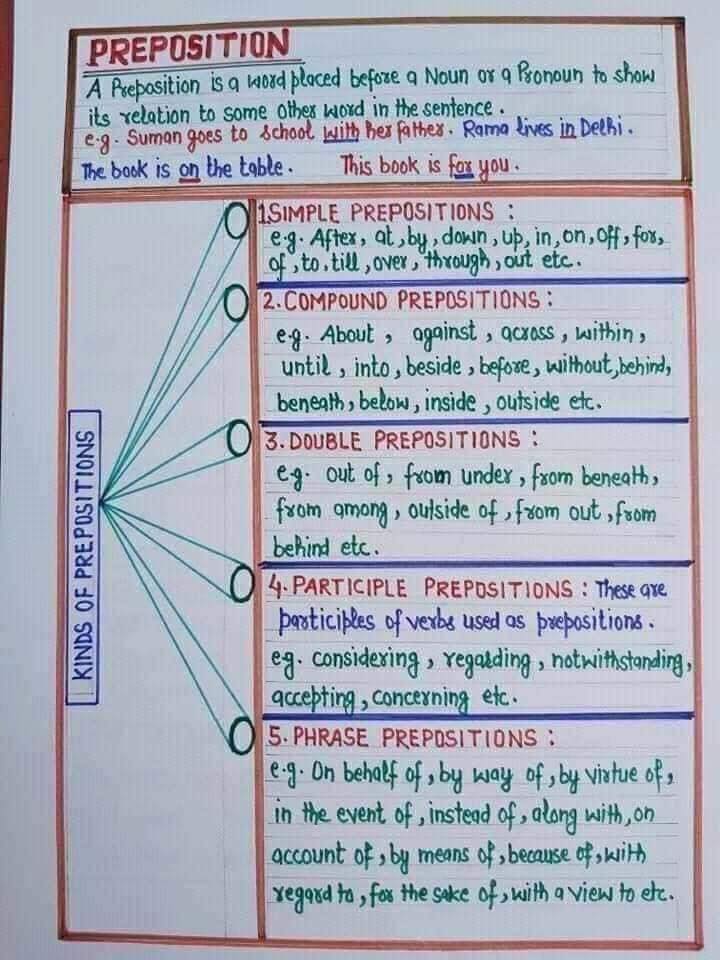 PREPOSITION
A Preposition is a word placed before a Noun or a Pronoun to show
its relation to some other word in the sentence.
e.g. Suman goes to school with her father. Rama lives in Delhi.
The book is on the table. This book is for you.
KINDS OF PREPOSITIONS
1.SIMPLE PREPOSITIONS :
e.g. After, at, by, down, up, in, on, off, for,
of, to, till, over, through, out etc.
2. COMPOUND PREPOSITIONS :
e.g. About , against , across , within,
until , into, beside , before, without, behind,
beneath, below, inside , outside etc.
3. DOUBLE PREPOSITIONS :
e.g. out of, from under, from beneath,
from among, outside of, from out, from
behind etc.
4. PARTICIPLE PREPOSITIONS : These are
participles of verbs used as prepositions.
eg. considering, regarding, notwithstanding,
accepting, concerning etc.
5. PHRASE PREPOSITIONS :
e.g. On behalf of, by way of, by virtue of,
in the event of, instead of, along with, on
account of, by means of, because of, with
regard to, for the sake of, with a view to etc.